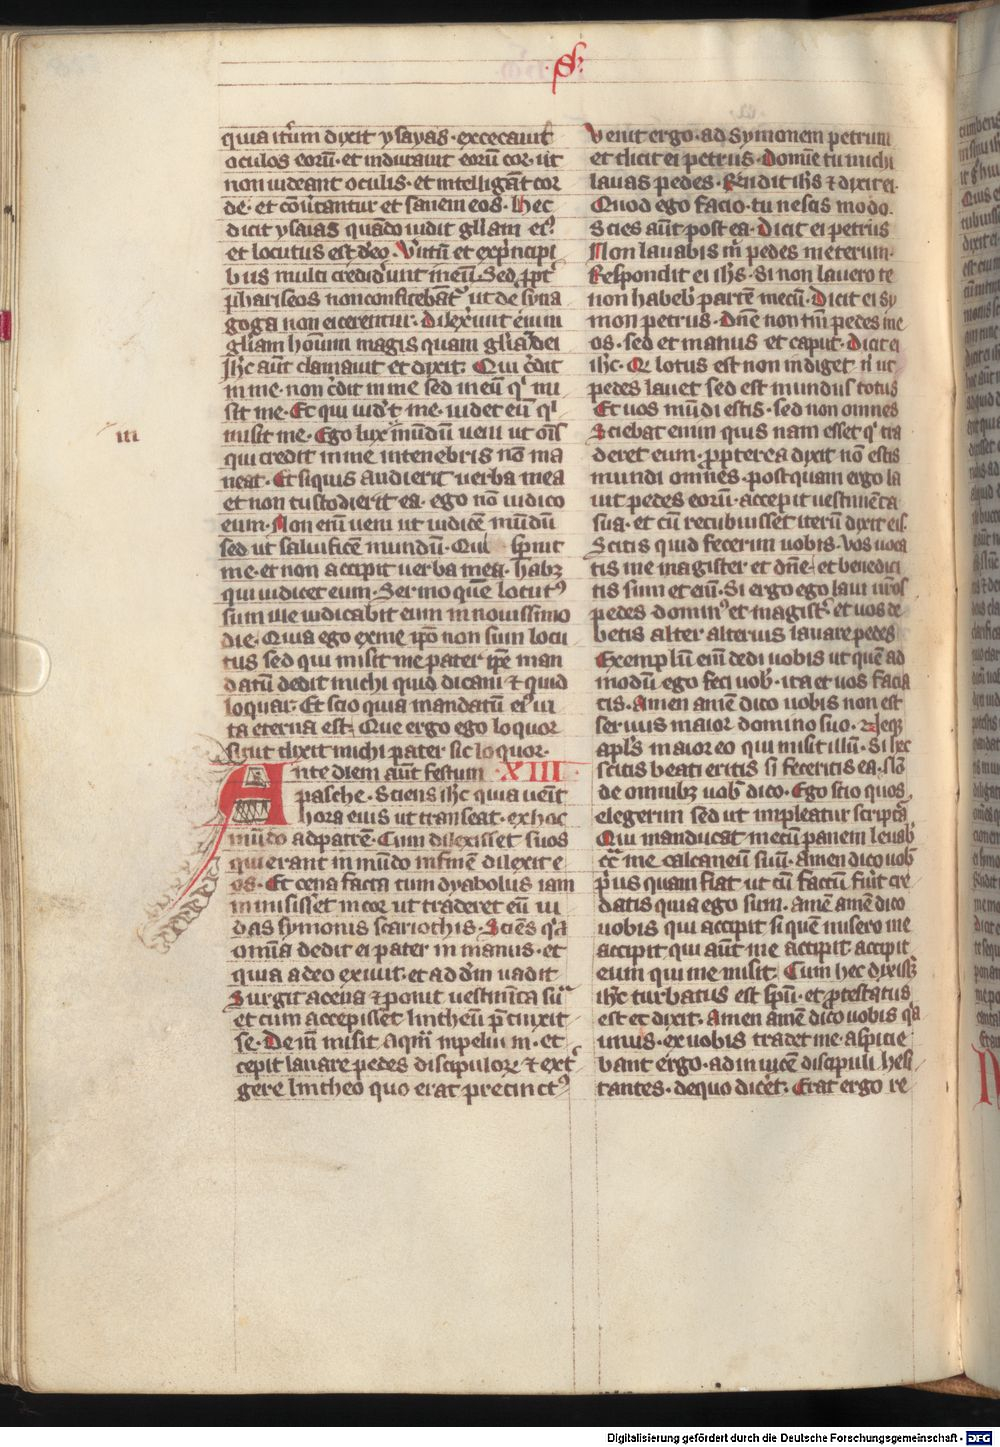 S
quia itm dixit ysayas · excecauit
oculos eorū · et indurauit eorū cor · ut
non uideant oculis · et intelligāt cor
de · et cōutantur et sanem eos · Hec
dicit ysaias quādo uidit gliam ei9
et locutus est d' eo · Vtm et ex pncipi
bus multi crediderunt in eū · Sed ppt
phariseos non confitebāt ut de syna
goga non eicerentur · Dilexerunt enim
gliam hoīum magis quam gliā dei
Ihc aūt clamauit et dixit · Qui cdit
in me · non cdit in me sed in eū qi mi
sit me · Et qui uidet me · uidet eū qi
iii
misit me · Ego lux in mūdū ueni ut oīs
qui credit in me in tenebris nō ma
neat · Et siquis audierit uerba mea
et non custodierit ea · ego nō iudico
eum · Non eni ueni ut iudicē mūdū
sed ut saluificē mundū · Qui spnit
me · et non accipit uerba mea · habz
qui iudicet eum · Sermo quē locut9
sum ille iudicabit eum in nouissimo
die · Quia ego ex me ipo non sum locu
tus sed qui misit me pater ipe man
datū dedit michi quid dicam ⁊ quid
loquar · Et scio quia mandatū ei9 ui
ta eterna est · Que ergo ego loquor
sicut dixit michi pater sic loquor ·
Ante diem aūt festum · XIII ·
pasche · Sciens ihc quia uenit
hora eius ut transeat · ex hoc
mūdo ad patrē · Cum dilexisset suos
qui erant in mūdo in finē dilexit e
os · Et cena facta cum dyabolus iam
immisisset in cor ut traderet eū iu
das symonis scariothis · Sciēs qa
omia dedit ei pater in manus · et
quia a deo exiuit · et ad dm uadit
Surgit a cena ⁊ ponit uestimēta sua
et cum accepisset lintheū pcinxit
se · Dein misit aqm in peluim · et
cepit lauare pedes discipulorꝝ · ⁊ ext
gere lintheo quo erat precinct9
Venit ergo · ad symonem petrum
et dicit ei petrus · Domīe tu michi
lauas pedes · Rndit ihs ⁊ dixit ei ·
Quod ego facio · tu nescis modo ·
Scies aūt post ea · Dicit ei petrus
Non lauabis m pedes in eternum ·
Respondit ei ihs · Si non lauero te
non habeb partē mecū · Dicit ei sy
mon petrus · Dne non tm pedes me
os · sed et manus et caput · Dicit ei
ihc · Qi lotus est non indiget · ni ut
pedes lauet sed est mundus totus
Et uos mūdi estis · sed non omnes
Sciebat enim quis nam esset qi tra
deret eum · propterea dixit nō estis
mundi omnes · postquam ergo la
uit pedes eorū · accepit uestimēta
sua · et cū recubuisset iterū dixit eis ·
Scitis quid fecerim uobis · Vos uoca
tis me magister et dne · et benedici
tis sum et eni · Si ergo ego laui uros
pedes · domin9 et magist · et uos de
betis alter alterius lauare pedes
Exemplū eni dedi uobis ut quē ad
modū ego feci uob · ita et uos facia
tis · Amen amē dico uobis non est
seruus maior domino suo · neq
apls maior eo qui misit illū · Si hec
scitis beati eritis si feceritis ea · nō
de omnibz uob dico · Ego scio quos
elegerim sed ut impleatur scriptā
Qui manducat mecū panem leuab
cͣ me calcaneū suū · Amen dico uob
pus quam fiat ut cū factū fuit cre
datis quia ego sum · Amē amē dico
uobis qui accipit si quē misero me
accipit · qui aūt me accipit · accipit
eum qui me misit · Cum hec dixisz
ihc turbatus est spū · et protestatus
est et dixit · Amen amē dico uobis qa
unus · ex uobis tradet me · aspicie
bant ergo · ad inuicē discipuli hesi
tantes · de quo dicet · Erat ergo re
Digitalisierung gefördert durch die Deutsche Forschungsgemeinschaft · DFG